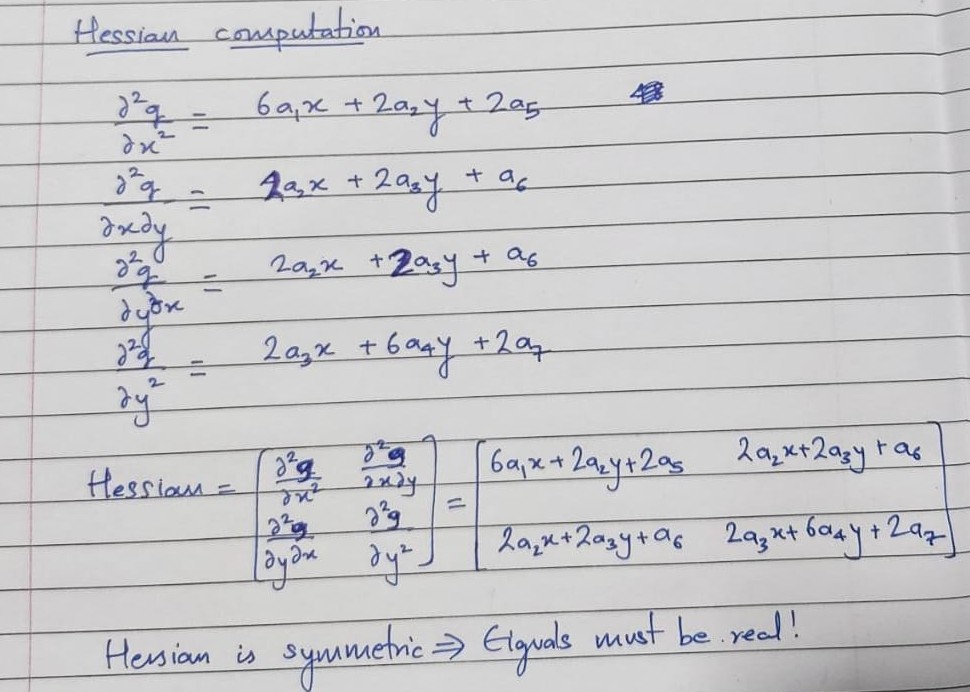 Hessian computation
∂²g/∂x² = 6a₁x + 2a₂y + 2a₅
∂²g/∂x∂y = 2a₂x + 2a₃y + a₆
∂²g/∂y∂x = 2a₂x + 2a₃y + a₆
∂²g/∂y² = 2a₃x + 6a₄y + 2a₇
Hessian = [∂²g/∂x² ∂²g/∂x∂y; ∂²g/∂y∂x ∂²g/∂y²] = [6a₁x+2a₂y+2a₅ 2a₂x+2a₃y+a₆; 2a₂x+2a₃y+a₆ 2a₃x+6a₄y+2a₇]
Hessian is symmetric ⇒ Eigvals must be real!